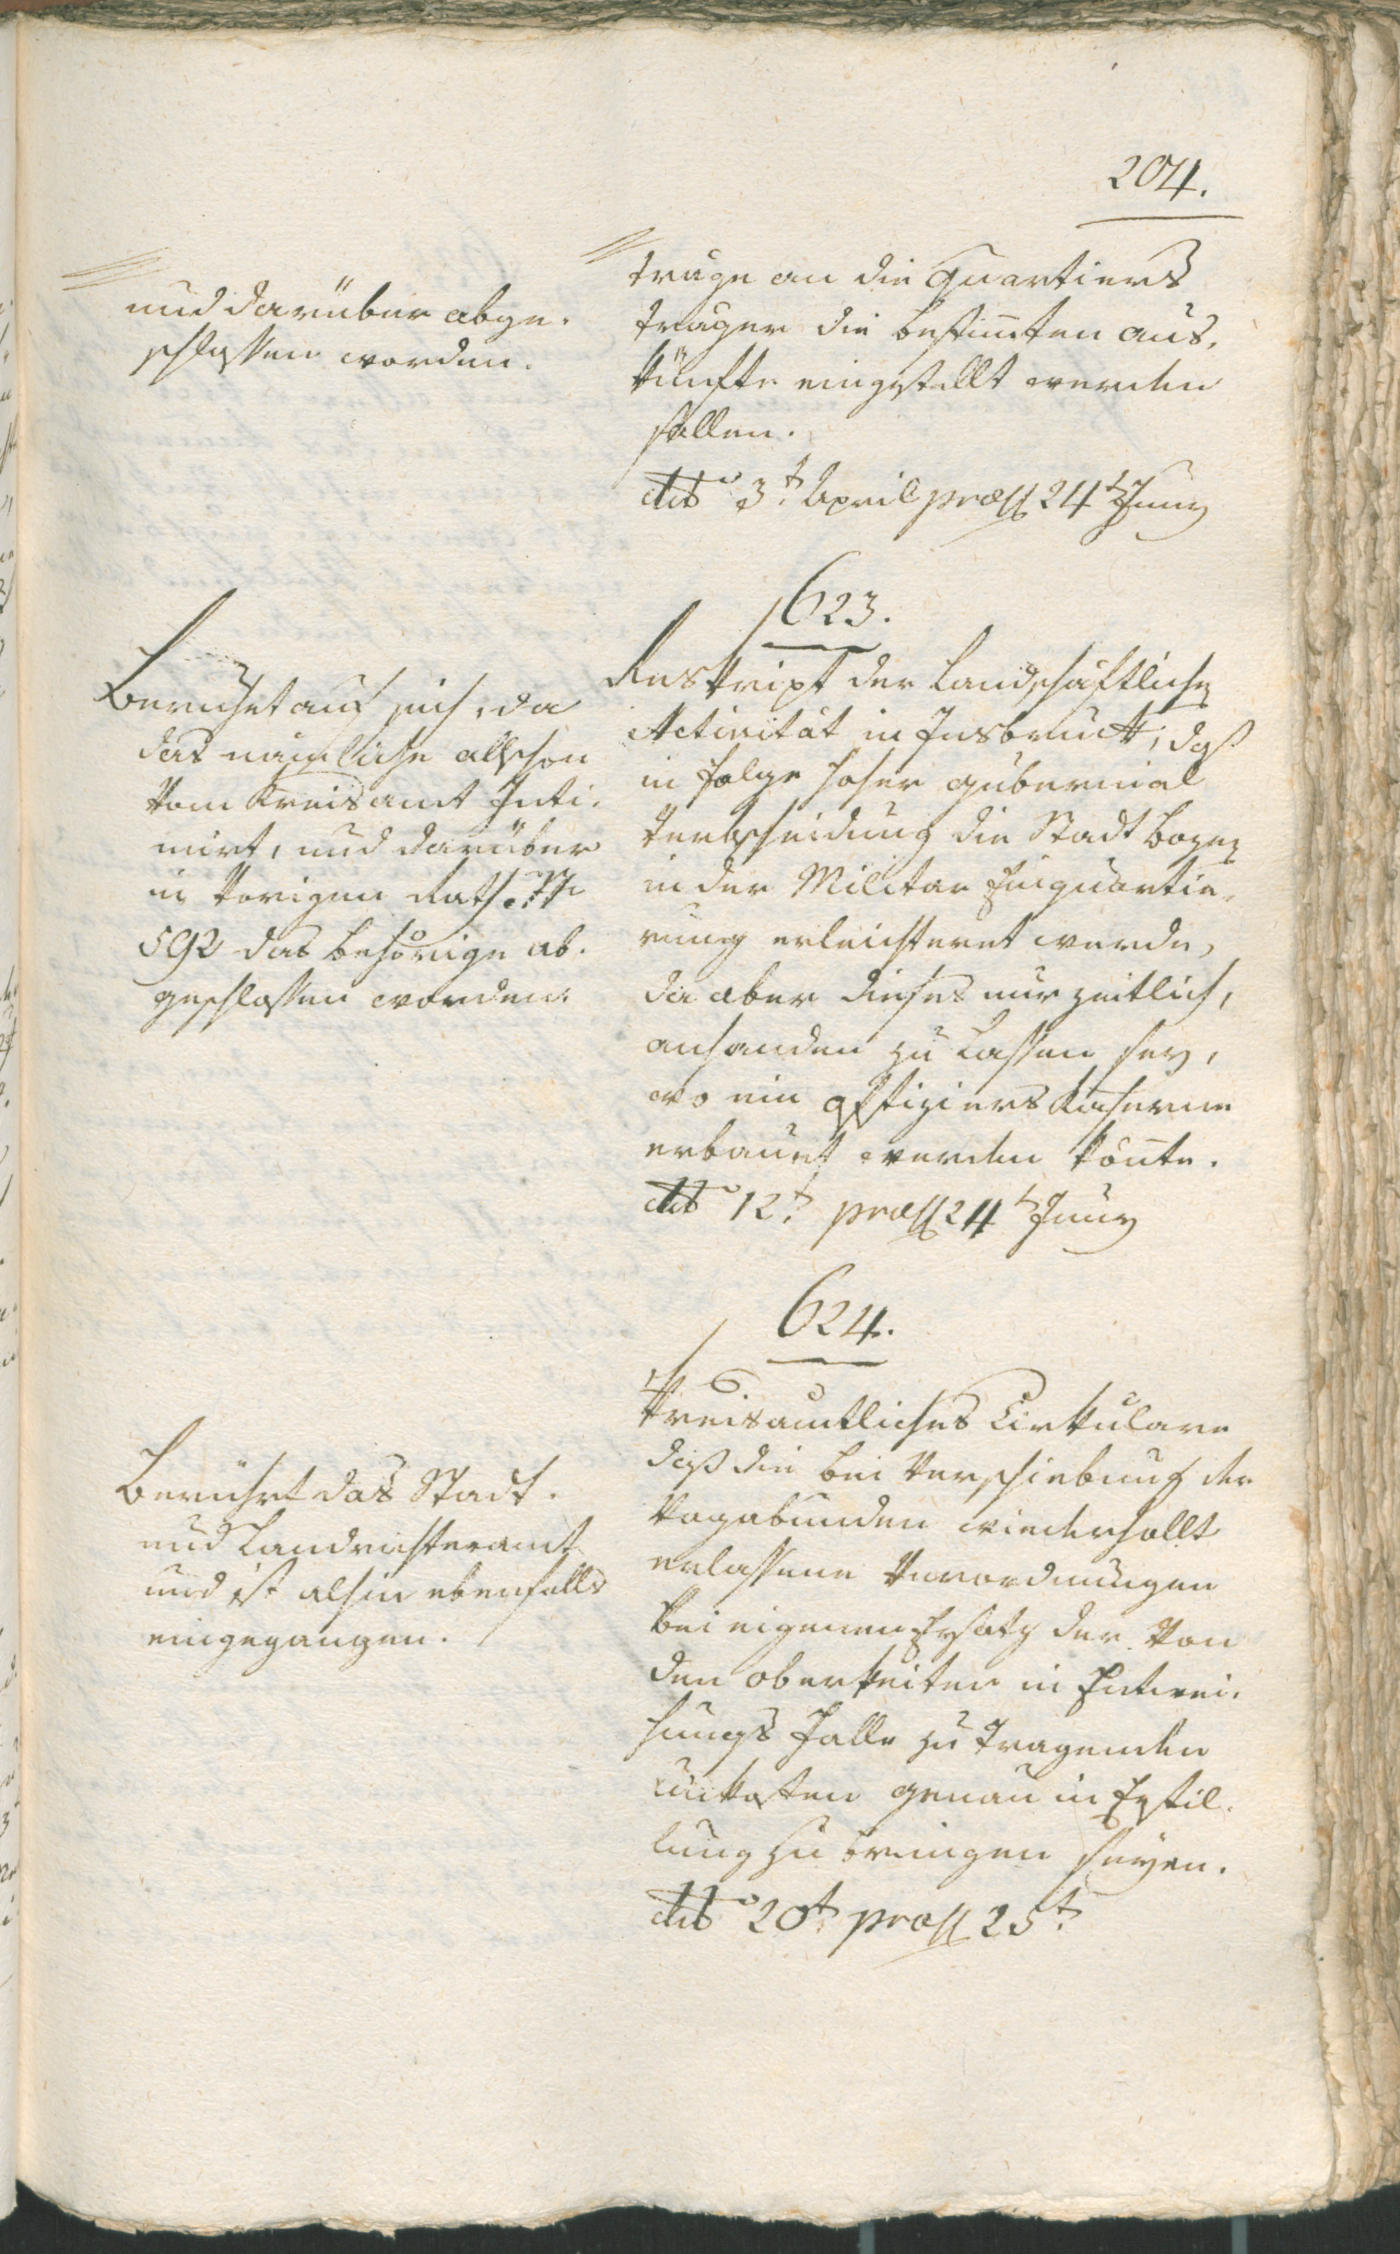 204.
und darüber abge-
schlossen worden.
truge an die Quartiers
trager die bestimten aus-
künfte eingestellt werden
sollen.
dto 3t. April præss 24t Juny
623.
Beruhet auf sich, da
das nämliche allschon
vom Kreisamt Inti-
mirt, und darüber
in vorigen Raths. Nr
592 das behörige ab-
geschlossen worden.
Reskript der Landschäftlichen
Activität in Insbruck, daß
in Folge hoher gubernial
verbscheidung die Stadt Bozen
in der Militar Einquartie-
rung erleichteret werde,
da aber dieses nur zeitlich,
anhanden zu lassen sey,
wo ein Offiziers Kaserne
erbauet werden könte.
dto 12t. præss 24t Juny
624.
Berührt das Stadt-
und Landrichteramt
und ist alhin ebenfalls
eingegangen.
Kreisamtliches Cirkulare
daß die bei Verschiebung der
Vagabunden wiederhollt
erlassene Verordnungen
bei eigenen Ersatz der von
den oberkeiten in Entwei-
hungs Falle zu tragenden
Unkosten genau in Erfül-
lung zu bringen seyen.
dto 20t. præss 25t.